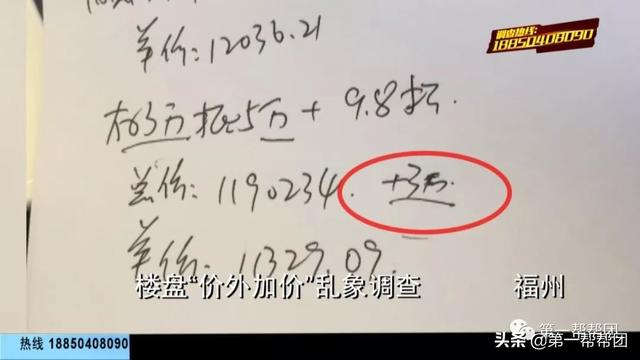 调查热线:
18850408090
单价: 12036.21
打3万抵5万 + 9.8折.
总价: 1190234. +3万.
单价: 11329.09.
楼盘“价外加价”乱象调查 福州
热线 18850408090
第一帮帮团
头条@第一帮帮团